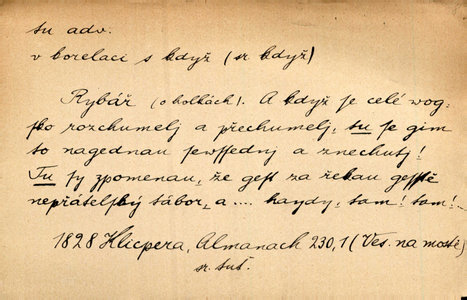 tu adv.
v korelaci s když (sr. když)
Rybář (o holkách). A když je celé wog-
sko rozchumelj a přechumelj, tu se gim
to nagednau sewssednj a znechutj!
Tu sy zpomenau, že gest za řekau gesstě
nepřátelský tábor, a .... haydy, tam! tam!
1828 Klicpera, Almanach 230,1 (Ves. na mostě)
sr. tuť.